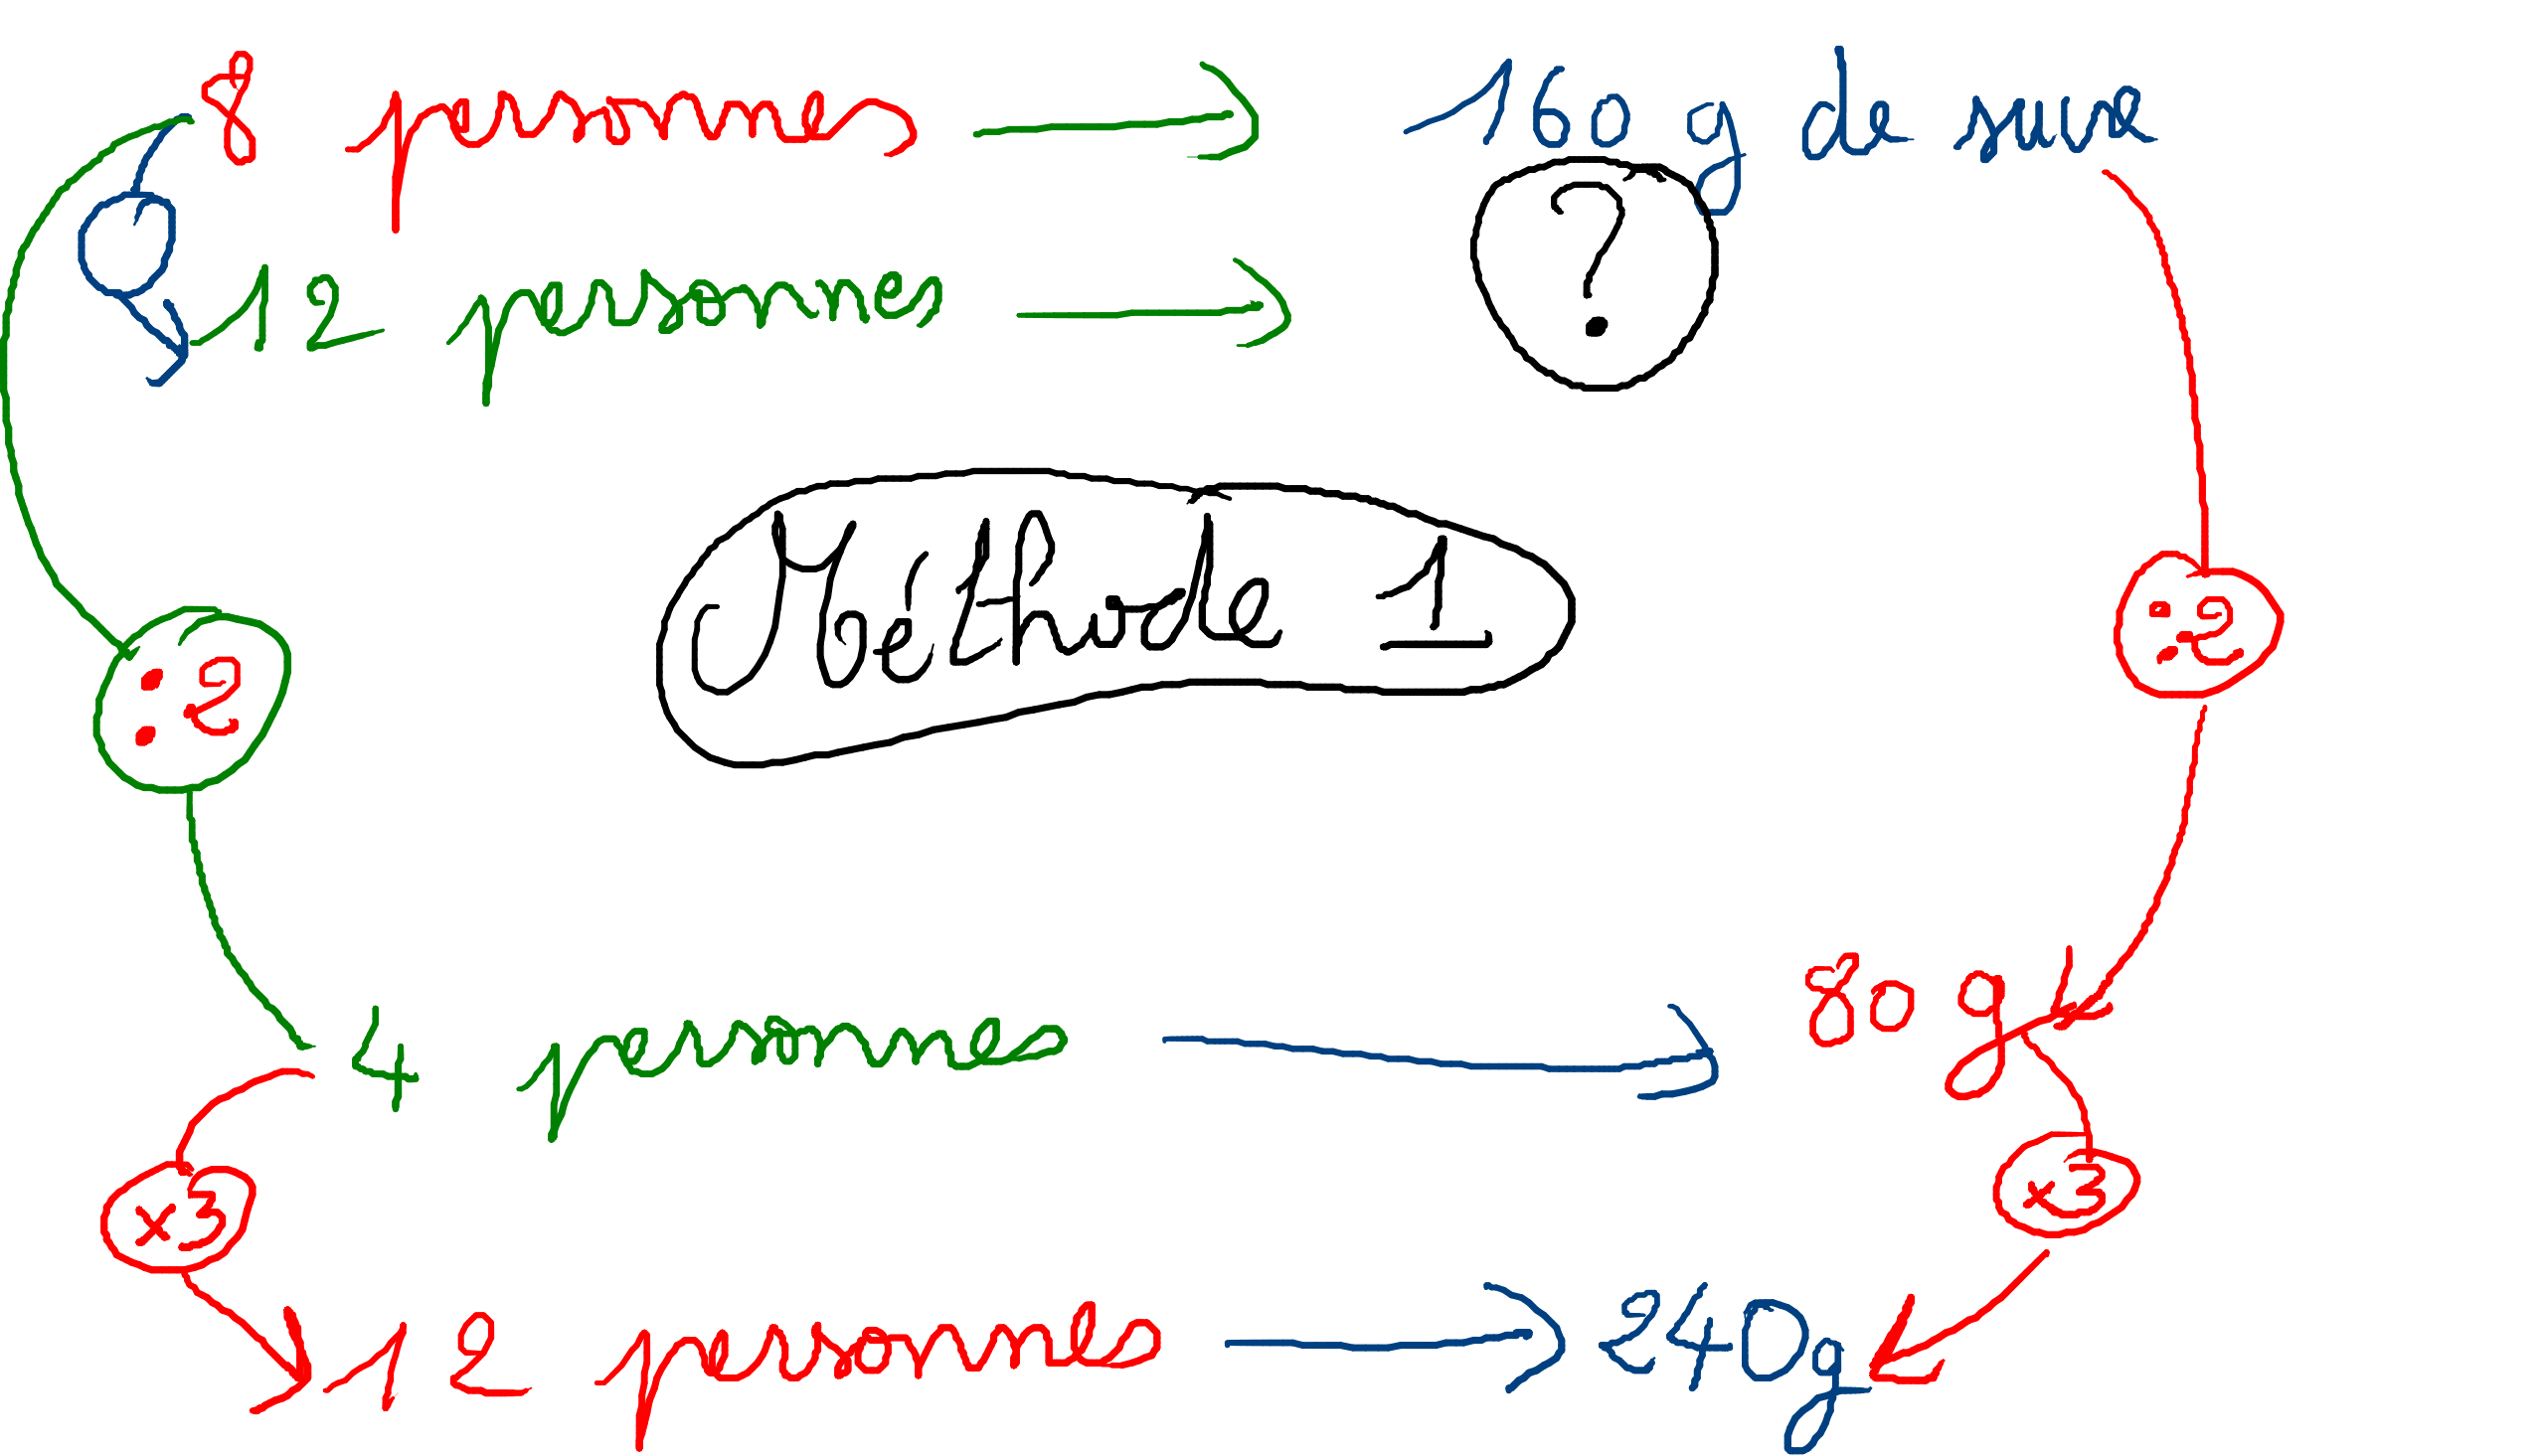 8 personnes → 160 g de sucre
12 personnes → ?
Méthode 1
: 2
: 2
4 personnes → 80 g
x3
x3
12 personnes → 240g